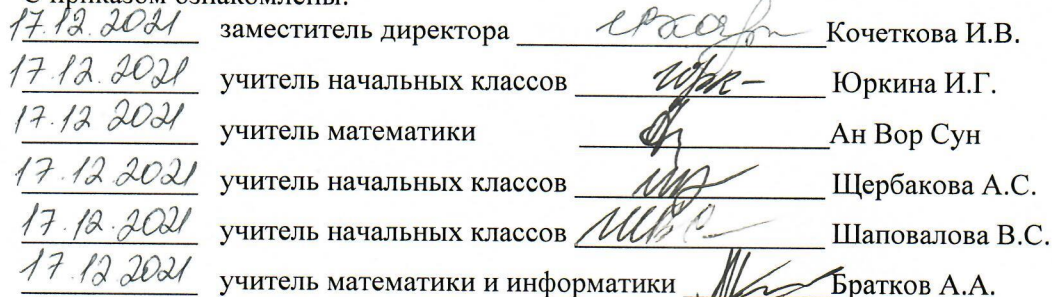 С приказом ознакомлены:
17.12.2021 заместитель директора Кочеткова И.В.
17.12.2021 учитель начальных классов Юркина И.Г.
17.12 2021 учитель математики Ан Вор Сун
17.12.2021 учитель начальных классов Щербакова А.С.
17.12.2021 учитель начальных классов Шаповалова В.С.
17.12.2021 учитель математики и информатики Братков А.А.